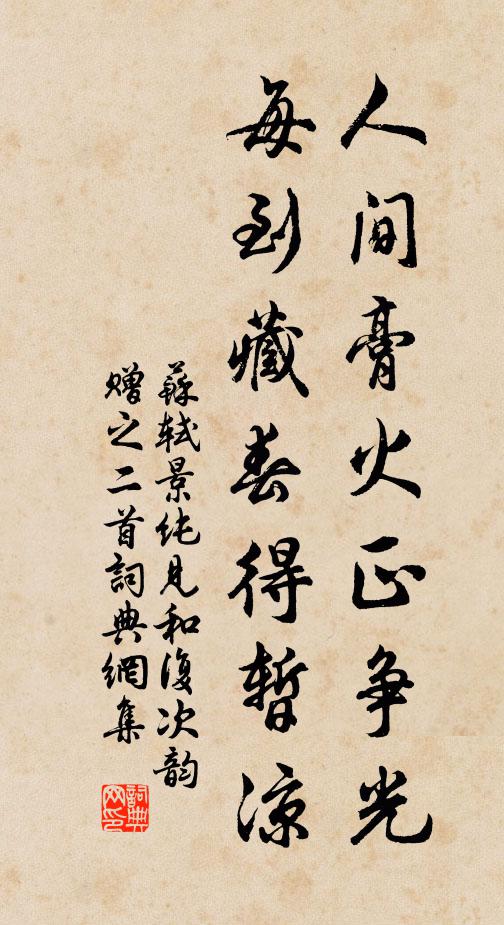 人間膏火正争光
每到藏春得暫涼
蘇軾景純見和復次韵
贈之二首詞典網集
詞典
网印